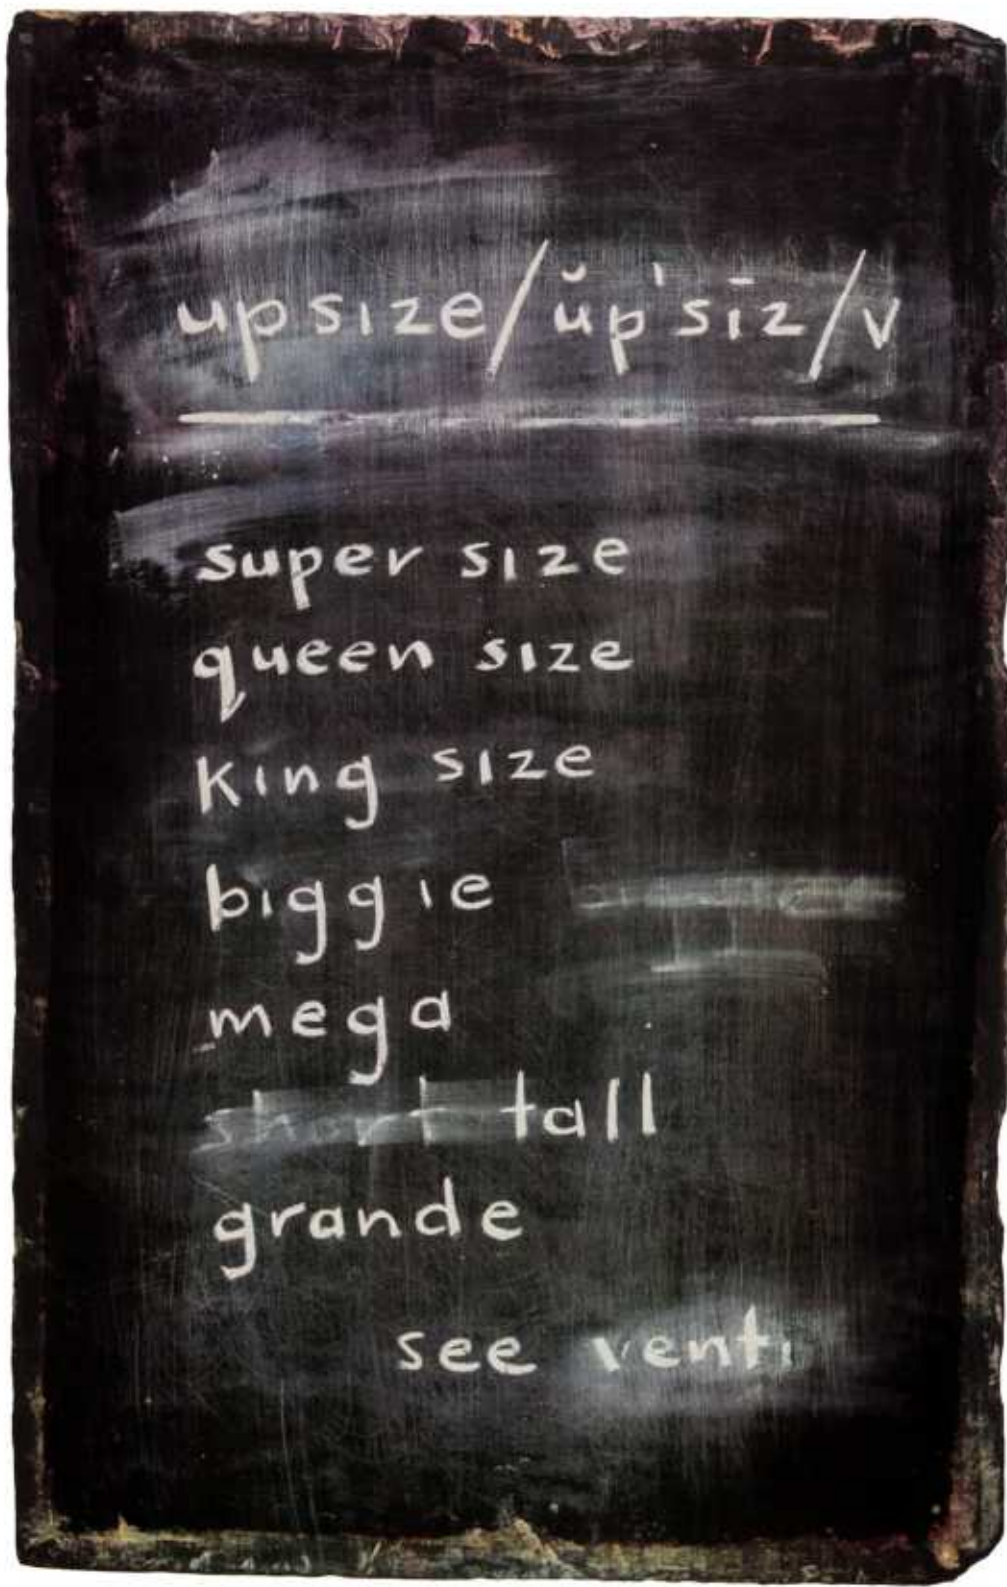 upsize/ŭp'sīz/v
super size
queen size
king size
biggie
mega
short tall
grande
see venti